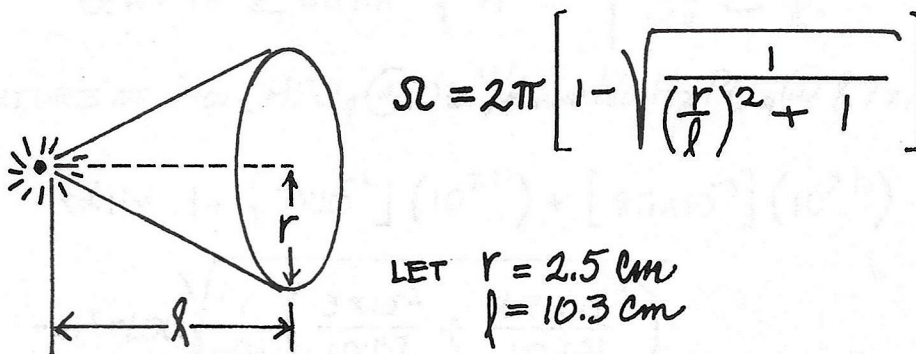 Ω = 2π [ 1 - √( 1 / ( (r/l)² + 1 ) ) ]
r
l
LET r = 2.5 cm
l = 10.3 cm